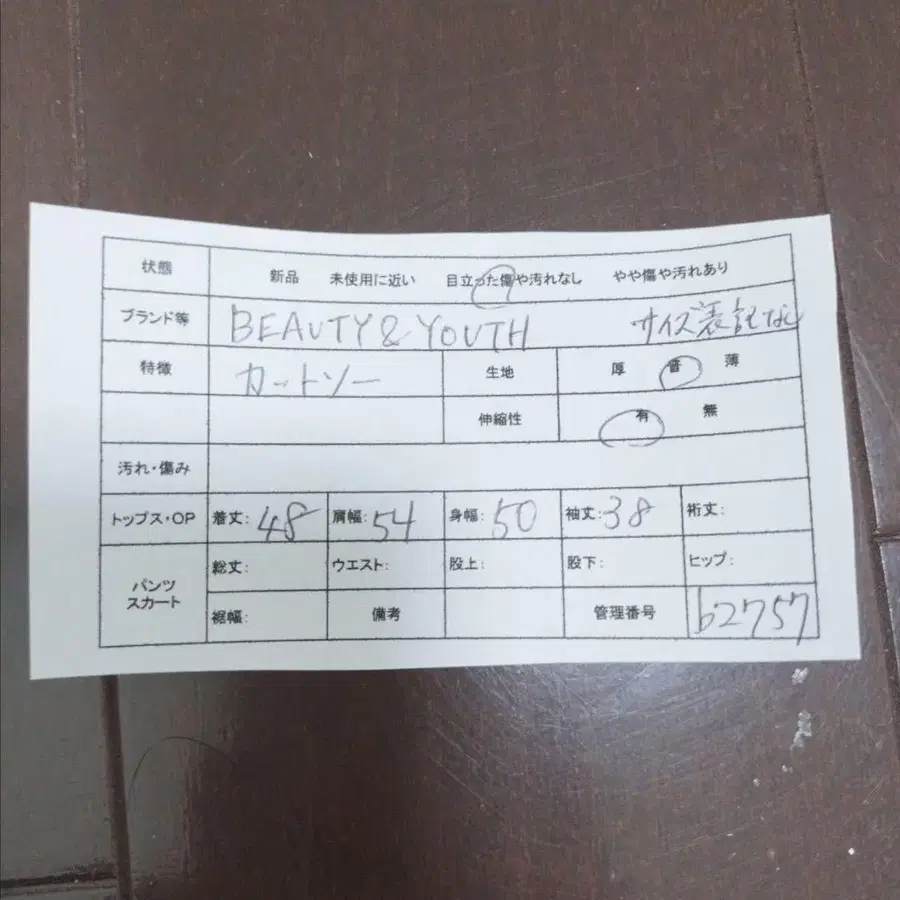 状態 新品 未使用に近い 目立った傷や汚れなし やや傷や汚れあり
ブランド等 BEAUTY&YOUTH サイズ表記なし
特徴 カットソー 生地 厚 普 薄
伸縮性 有 無
汚れ・傷み
トップス・OP 着丈:48 肩幅:54 身幅:50 袖丈:38 裄丈:
パンツ スカート 総丈: ウエスト: 股上: 股下: ヒップ:
裾幅: 備考 管理番号 b2757